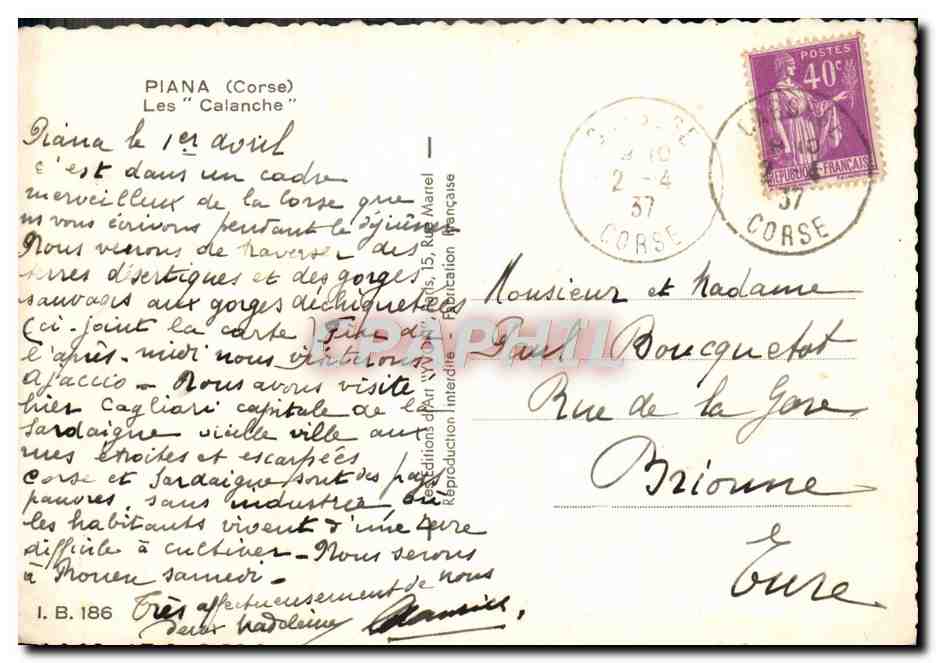 PIANA (Corse)
Les "Calanche"
Piana le 1er avril
c'est dans un cadre
merveilleux de la Corse que
ns vous écrivons pendant le déjeuner
Nous venons de traverser des
terres désertiques et des gorges
sauvages aux gorges déchiquetées
(ci-joint la carte) Fin de
l'après-midi nous visiterons
Ajaccio - Nous avons visité
hier Cagliari capitale de la
Sardaigne vieille ville aux
rues étroites et escarpées
Corse et Sardaigne sont des pays
pauvres, sans industrie où
les habitants vivent d'une terre
difficile à cultiver - Nous serons
à Rouen samedi -
Très affectueusement de nous
deux Madeleine
I. B. 186
Les Editions d'Art "YVON", Paris, 15, Rue Martel
Reproduction interdite - Fabrication Française
POSTES
40c
REPUBLIQUE FRANÇAISE
2 - 4
37
CORSE
37
CORSE
Monsieur et Madame
Paul Boucquetot
Rue de la Gare
Brionne
Eure